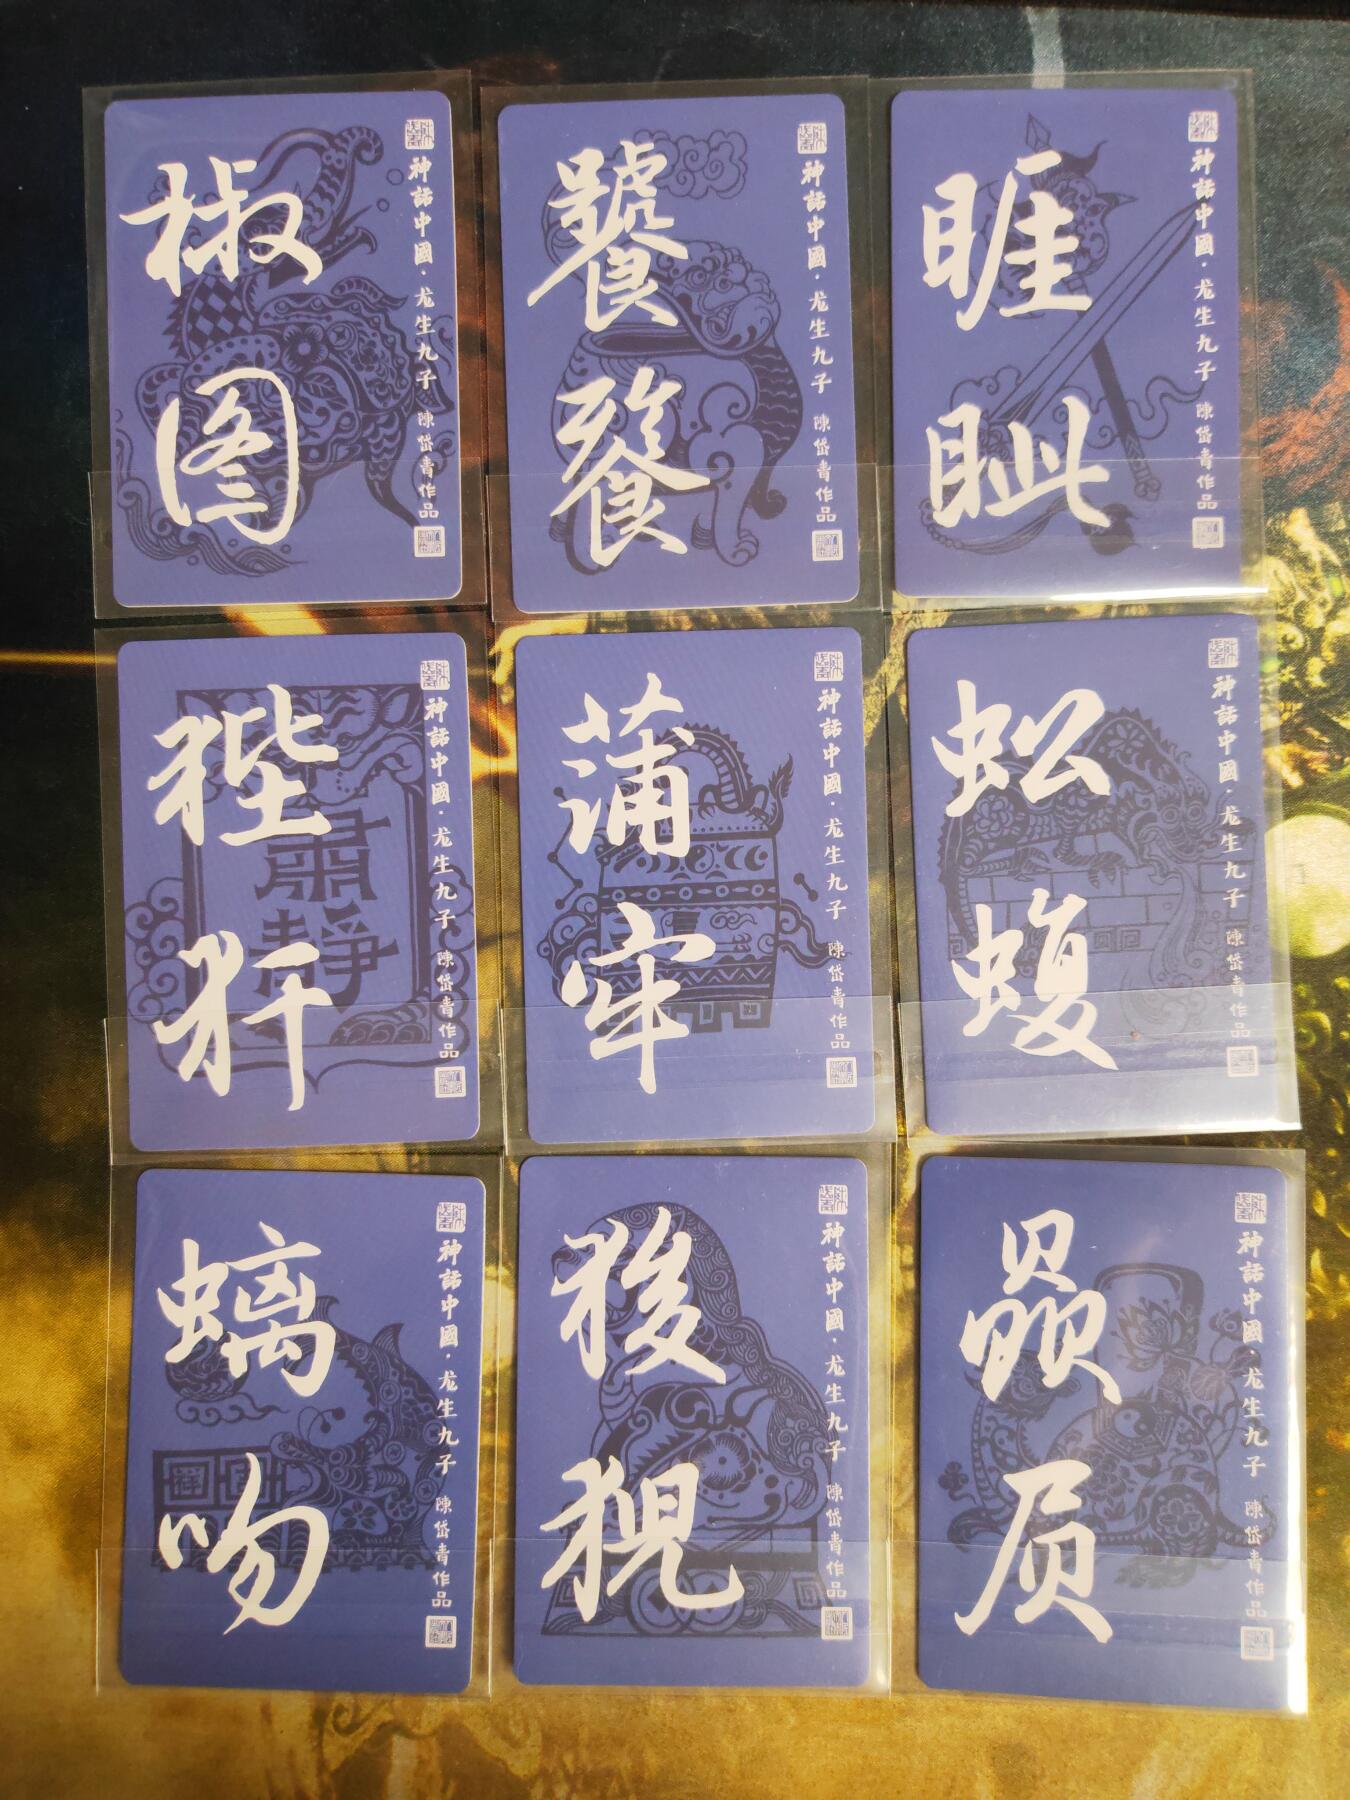 椒图
神話中國·龙生九子 陳岱青作品
饕餮
神話中國·龙生九子 陳岱青作品
睚眦
神話中國·龙生九子 陳岱青作品
狴犴
肅靜
神話中國·龙生九子 陳岱青作品
蒲牢
神話中國·龙生九子 陳岱青作品
蚣蝮
神話中國·龙生九子 陳岱青作品
螭吻
神話中國·龙生九子 陳岱青作品
狻猊
神話中國·龙生九子 陳岱青作品
赑屃
神話中國·龙生九子 陳岱青作品